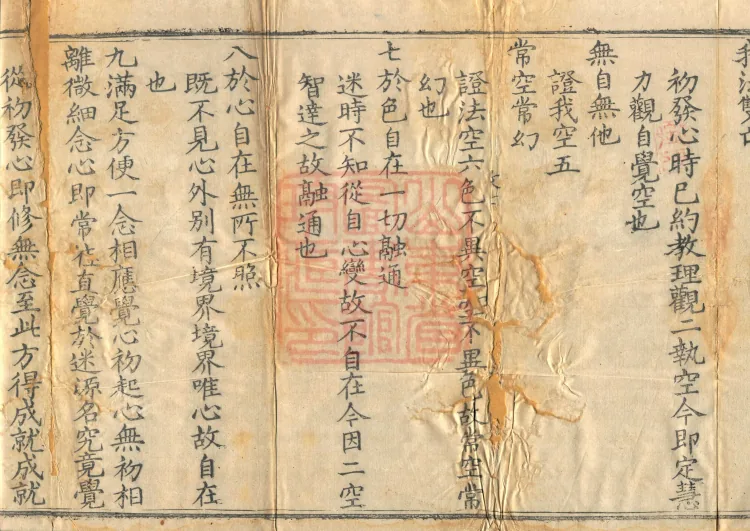 我法雙亡
初發心時已約教理觀二執空今即定慧
力觀自覺空也
無自無他
證我空五
常空常幻
證法空六色不異空空不異色故常空常
幻也
七於色自在一切融通
迷時不知從自心變故不自在今因二空
智達之故融通也
八於心自在無所不照
既不見心外别有境界境界唯心故自在
也
九滿足方便一念相應覺心初起心無初相
離微細念心即常住直覺於迷源名究竟覺
從初發心即修無念至此方得成就成就